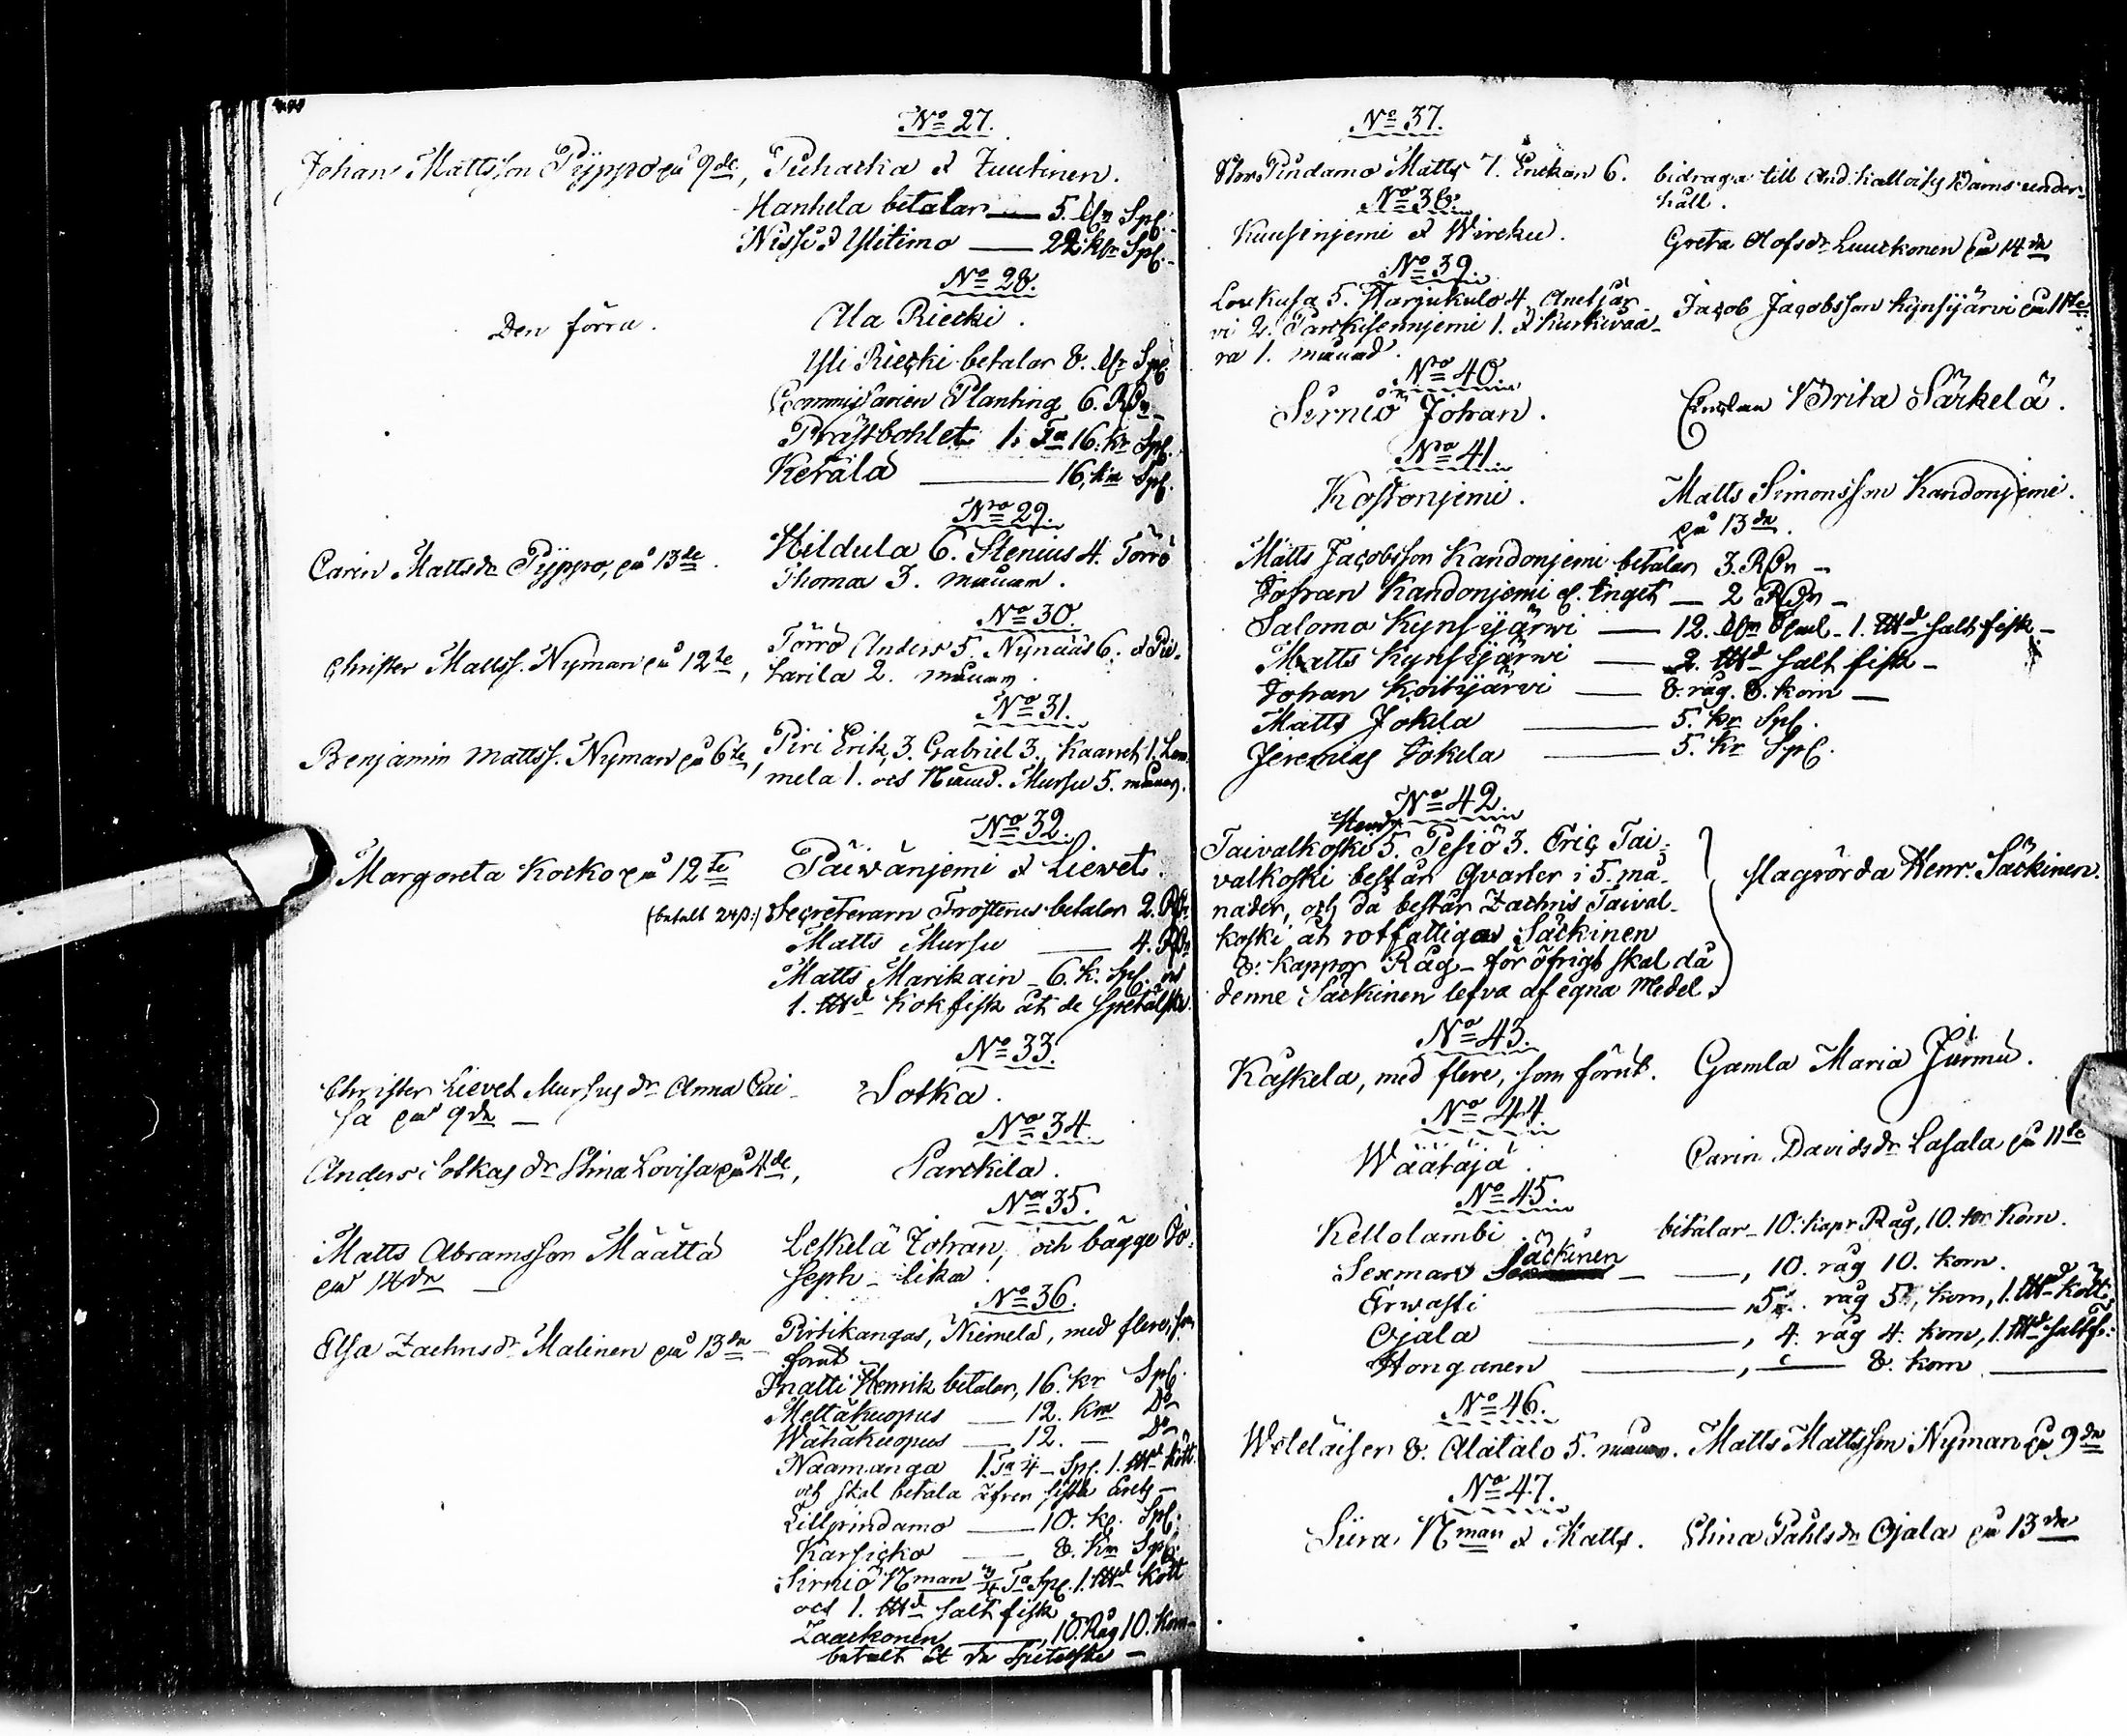 No 27.
Johan Mattsson Pyppö på 9de, Puhacka & Tuutinen.
Hanhela betalar — 5. Spl.
Nissi & Ylitimo — 22 kpr Spl.
No 28.
Den förra. Ala Riecki.
Yli Riecki betalar 8. Spl.
Commissarien Planting 6. RDr
Prästbohlet 1. Ta 16. kr Spl.
Kerälä — 16. kr Spl.
No 29.
Carin Mattsdr Pyppö, på 13de. Hildula 6. Stenius 4. Törrö
Thomas 3. månan.
No 30.
Christer Mattss. Nyman på 12te, Törrö Anders 5. Nynäås 6. & Pie-
tarila 2. månan.
No 31.
Benjamin Mattss. Nyman på 6te, Piri Erik 3. Gabriel 3. 1. Lom-
mela 1. och Mursu 5. månan.
No 32.
Margareta Kocko på 12te Päiwänjemi & Lievet.
(betalt 24ß:) Secreteraren Frosterus betalar 2. RDr
Matts Mursu — 4. RDr
Matts Marikain — 6. k. Spl. och
1. kokfisk åt de Spetalske.
No 33.
Christer Lievet Mursus dr Anna Cai- Sotka.
sa på 9de —
No 34.
Anders Sotkas dr Stina Lovisa på 4de, Parckila.
No 35.
Matts Abramsson Määttä Leskelä Johan, och bägge Jo-
på 14de — seph – lika.
No 36.
Elsa Zachrisdr Malinen på 13de — Ritikangas, Niemelä, med flere, som
förut
Inatti Henrik betalar, 16. kr Spl.
Mettäkuopus — 12. kr Do
Wähäkuopus — 12. — Do
Naamanga 1. Ta 4 – Spl. 1. kött
och skal betala
Lillpindamo — 10. kp. Spl.
Karsicko — 8. kr Spl.
Sirniö Nman 3/4 Ta Spl. 1. kött
och 1. salt fisk
Laackonen —, 10. Råg 10. Korn –
betalt åt de Spetalske —
No 37.
Stor Pindamo Matts 7. Enckan 6. bidraga till And. Kallois Barns under-
håll.
No 38.
Kuusinjemi & Wireku. Greta Olofsdr Luuckonen på 14de
No 39.
Loukusa 5. Harjukulo 4. Anetjär- Jacob Jacobsson Kynsijärvi på 11te
vi 2. Parckisennjemi 1. & Kurkivaa-
ra 1. månad.
No 40
Sirniö Johan. Enckan Brita Särkelä.
No 41.
Kostonjemi. Matts Simonsson Kandonjemi.
på 13de.
Matts Jacobsson Kandonjemi betalar 3. RDr —
Johan Kandonjemi el. Inget — 2 RDr —
Salomo Kynsijärwi — 12. Spml – 1. salt fisk –
Matts Kynsijärwi — 2. salt fisk –
Johan Koitijärvi — 8. råg. 8. korn —
Matts Jokela — 5. kr Spl.
Jeremias Jokela — 5. kr Spl.
No 42.
Hendr
Taivalkoski 5. Pesiö 3. Eric Tai-
valkoski består Qvarter i 5. må-
nader, och då består Zachris Taival-
koski åt rotfattigas Säckinen
8. kappor Råg – för öfrigt skal då
denne Säckinen lefva af egna Medel.
slagrörda Henr. Säckinen.
No 43.
Kaskela, med flere, som förut. Gamla Maria Jurmu.
No 44.
Wäätäjä. Carin Davidsdr Lasala på 11te
No 45.
Kellolambi betalar – 10. kapr Råg, 10. kr. Korn.
Sexman Säckinen — —, 10. råg 10. korn.
Erwasti —, 5. råg 5, korn, 1. kött,
Ojala —, 4. råg 4. korn, 1. saltf.
Honganen —, — 8. korn —
No 46.
Weteläisen 8. Alatalo 5. månan. Matts Mattsson Nyman på 9de
No 47.
Siira, Nman & Matts. Stina Påhlsdr Ojala på 13de